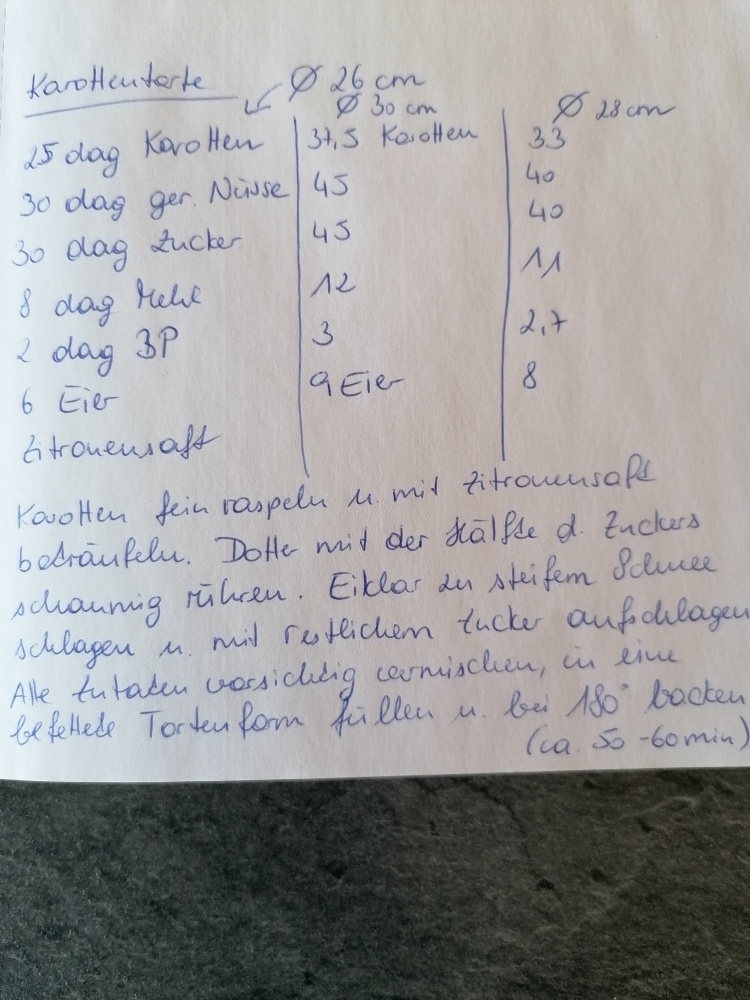 Karottentorte ↙ Ø 26 cm
Ø 30 cm Ø 28 cm
25 dag Karotten 37,5 Karotten 33
30 dag ger. Nüsse 45 40
30 dag Zucker 45 40
8 dag Mehl 12 11
2 dag BP 3 2,7
6 Eier 9 Eier 8
Zitronensaft
Karotten fein raspeln u. mit Zitronensaft
beträufeln. Dotter mit der Hälfte d. Zuckers
schaumig rühren. Eiklar zu steifem Schnee
schlagen u. mit restlichem Zucker aufschlagen
Alle Zutaten vorsichtig vermischen, in eine
befettete Tortenform füllen u. bei 180° backen
(ca. 50 - 60 min)